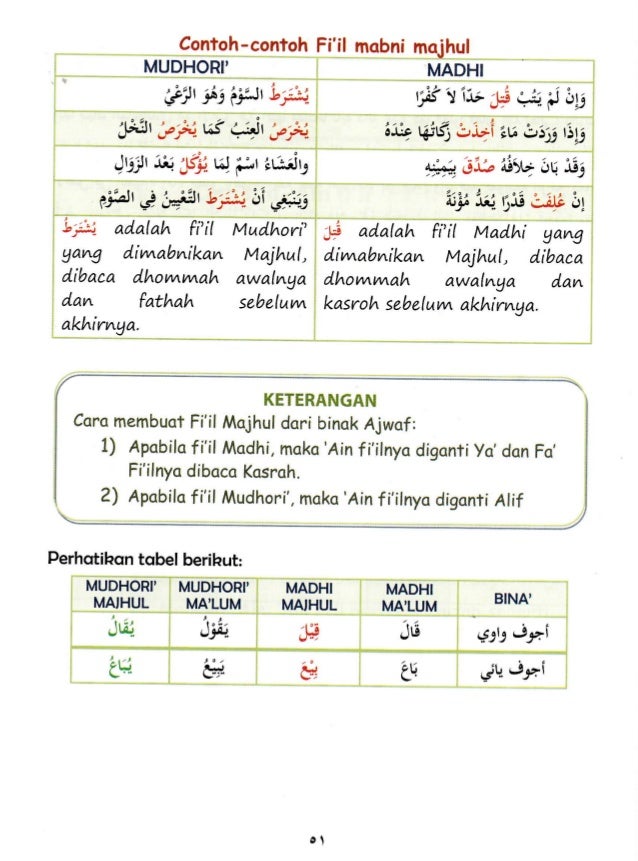 Contoh-contoh Fi'il mabni majhul
MUDHORI' MADHI
يُشْتَرَطُ السَّوْمُ وَهُوَ الرَّعْيُ وَإِنْ لَمْ يَتُبْ قُتِلَ حَدًّا لاَ كُفْرًا
يُخْرَصُ الْعِنَبُ كَمَا يُخْرَصُ النَّخْلُ وَإِذَا وَرَدَتْ مَاءً أُخِذَتْ زَكَاتُهَا عِنْدَهُ
والْعَشَاءُ اسْمٌ لِمَا يُؤْكَلُ بَعْدَ الزَّوَالِ وَقَدْ بَانَ خِلَافُهُ صُدِّقَ بِيَمِيْنِهِ
وَيَنْبَغِي أَنْ يُشْتَرَطَ التَّعْيِيْنُ فِي الصَّوْمِ إنْ عُلِفَتْ قَدْرًا يُعَدُّ مُؤْنَةً
يُشْتَرَطُ adalah fi'il Mudhori'
yang dimabnikan Majhul,
dibaca dhommah awalnya
dan fathah sebelum
akhirnya.
قُتِلَ adalah fi'il Madhi yang
dimabnikan Majhul, dibaca
dhommah awalnya dan
kasroh sebelum akhirnya.
KETERANGAN
Cara membuat Fi'il Majhul dari binak Ajwaf:
1) Apabila fi'il Madhi, maka 'Ain fi'ilnya diganti Ya' dan Fa'
Fi'ilnya dibaca Kasrah.
2) Apabila fi'il Mudhori', maka 'Ain fi'ilnya diganti Alif
Perhatikan tabel berikut:
MUDHORI' MUDHORI' MADHI MADHI BINA'
MAJHUL MA'LUM MAJHUL MA'LUM
يُقَالُ يَقُوْلُ قِيْلَ قَالَ أجوف واوي
يُبَاعُ يَبِيْعُ بِيْعَ بَاعَ أجوف يائي
٥١